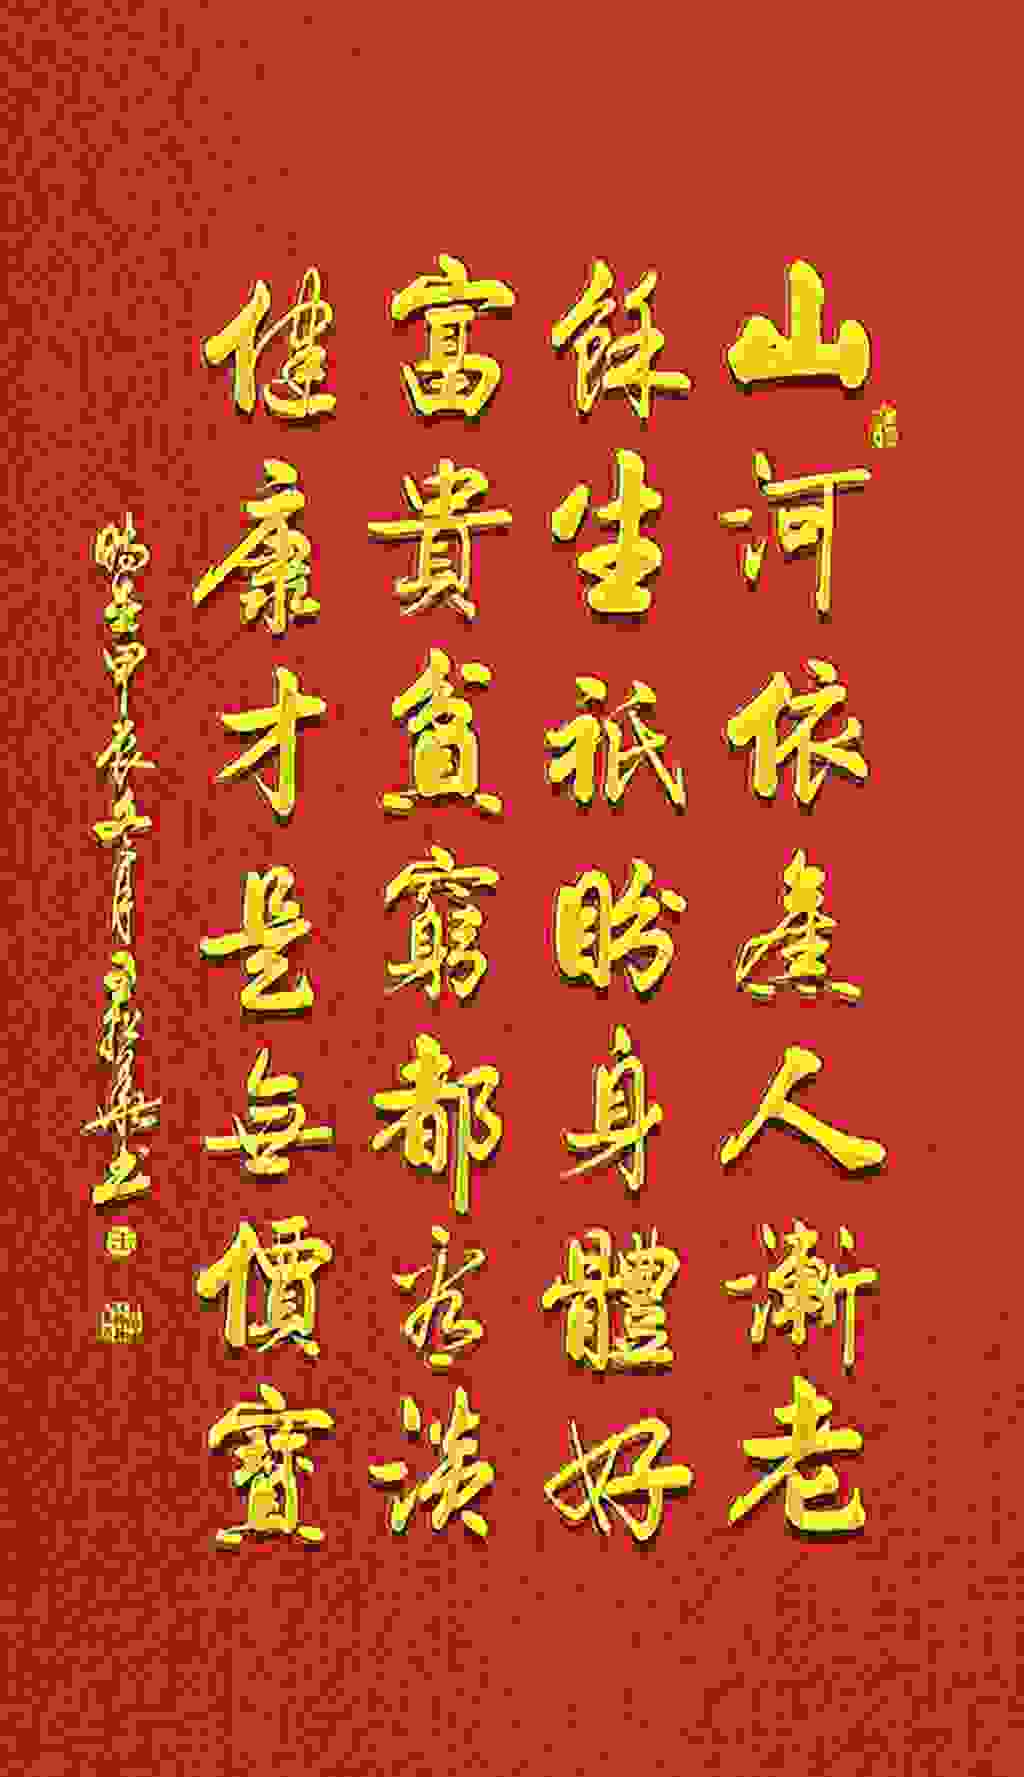 山河依舊人漸老
餘生祇盼身體好
富貴貧窮都看淡
健康才是無價寶
甲辰 月 書